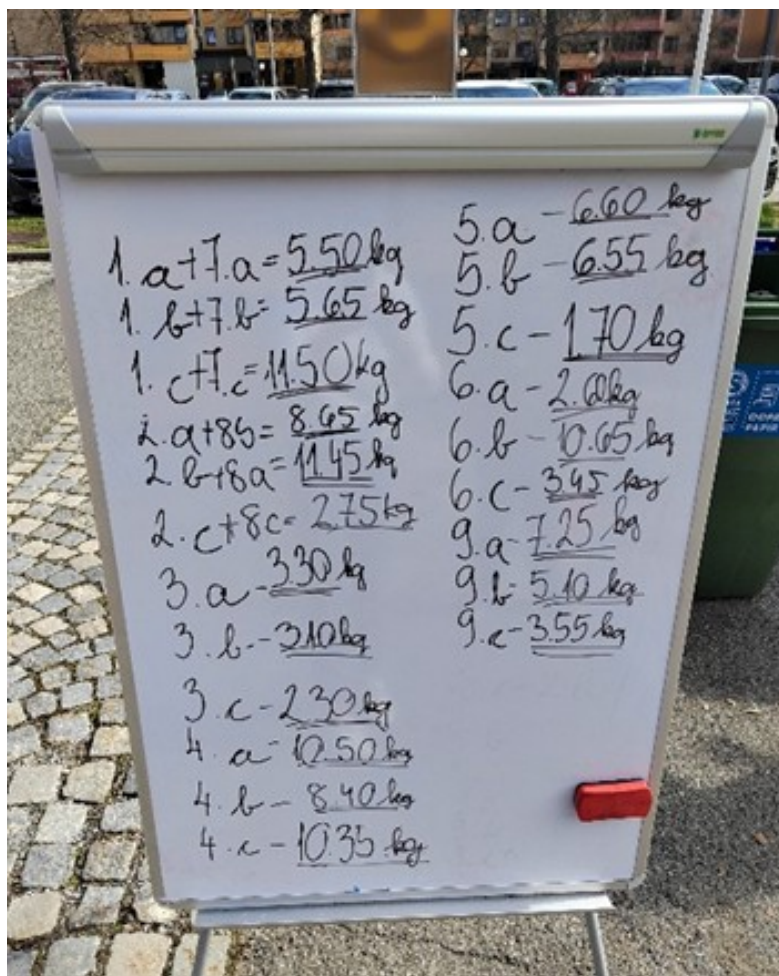 1. a+7.a= 5.50 kg
1. b+7.b= 5.65 kg
1. c+7.c= 11.50 kg
2. a+8b= 8.65 kg
2. b+8a= 11.45 kg
2. c+8c= 2.75 kg
3. a - 3.30 kg
3. b - 3.10 kg
3. c - 2.30 kg
4. a - 10.50 kg
4. b - 8.40 kg
4. c - 10.35 kg
5. a - 6.60 kg
5. b - 6.55 kg
5. c - 1.70 kg
6. a - 2.60 kg
6. b - 10.65 kg
6. c - 3.45 kg
9. a - 7.25 kg
9. b - 5.10 kg
9. c - 3.55 kg